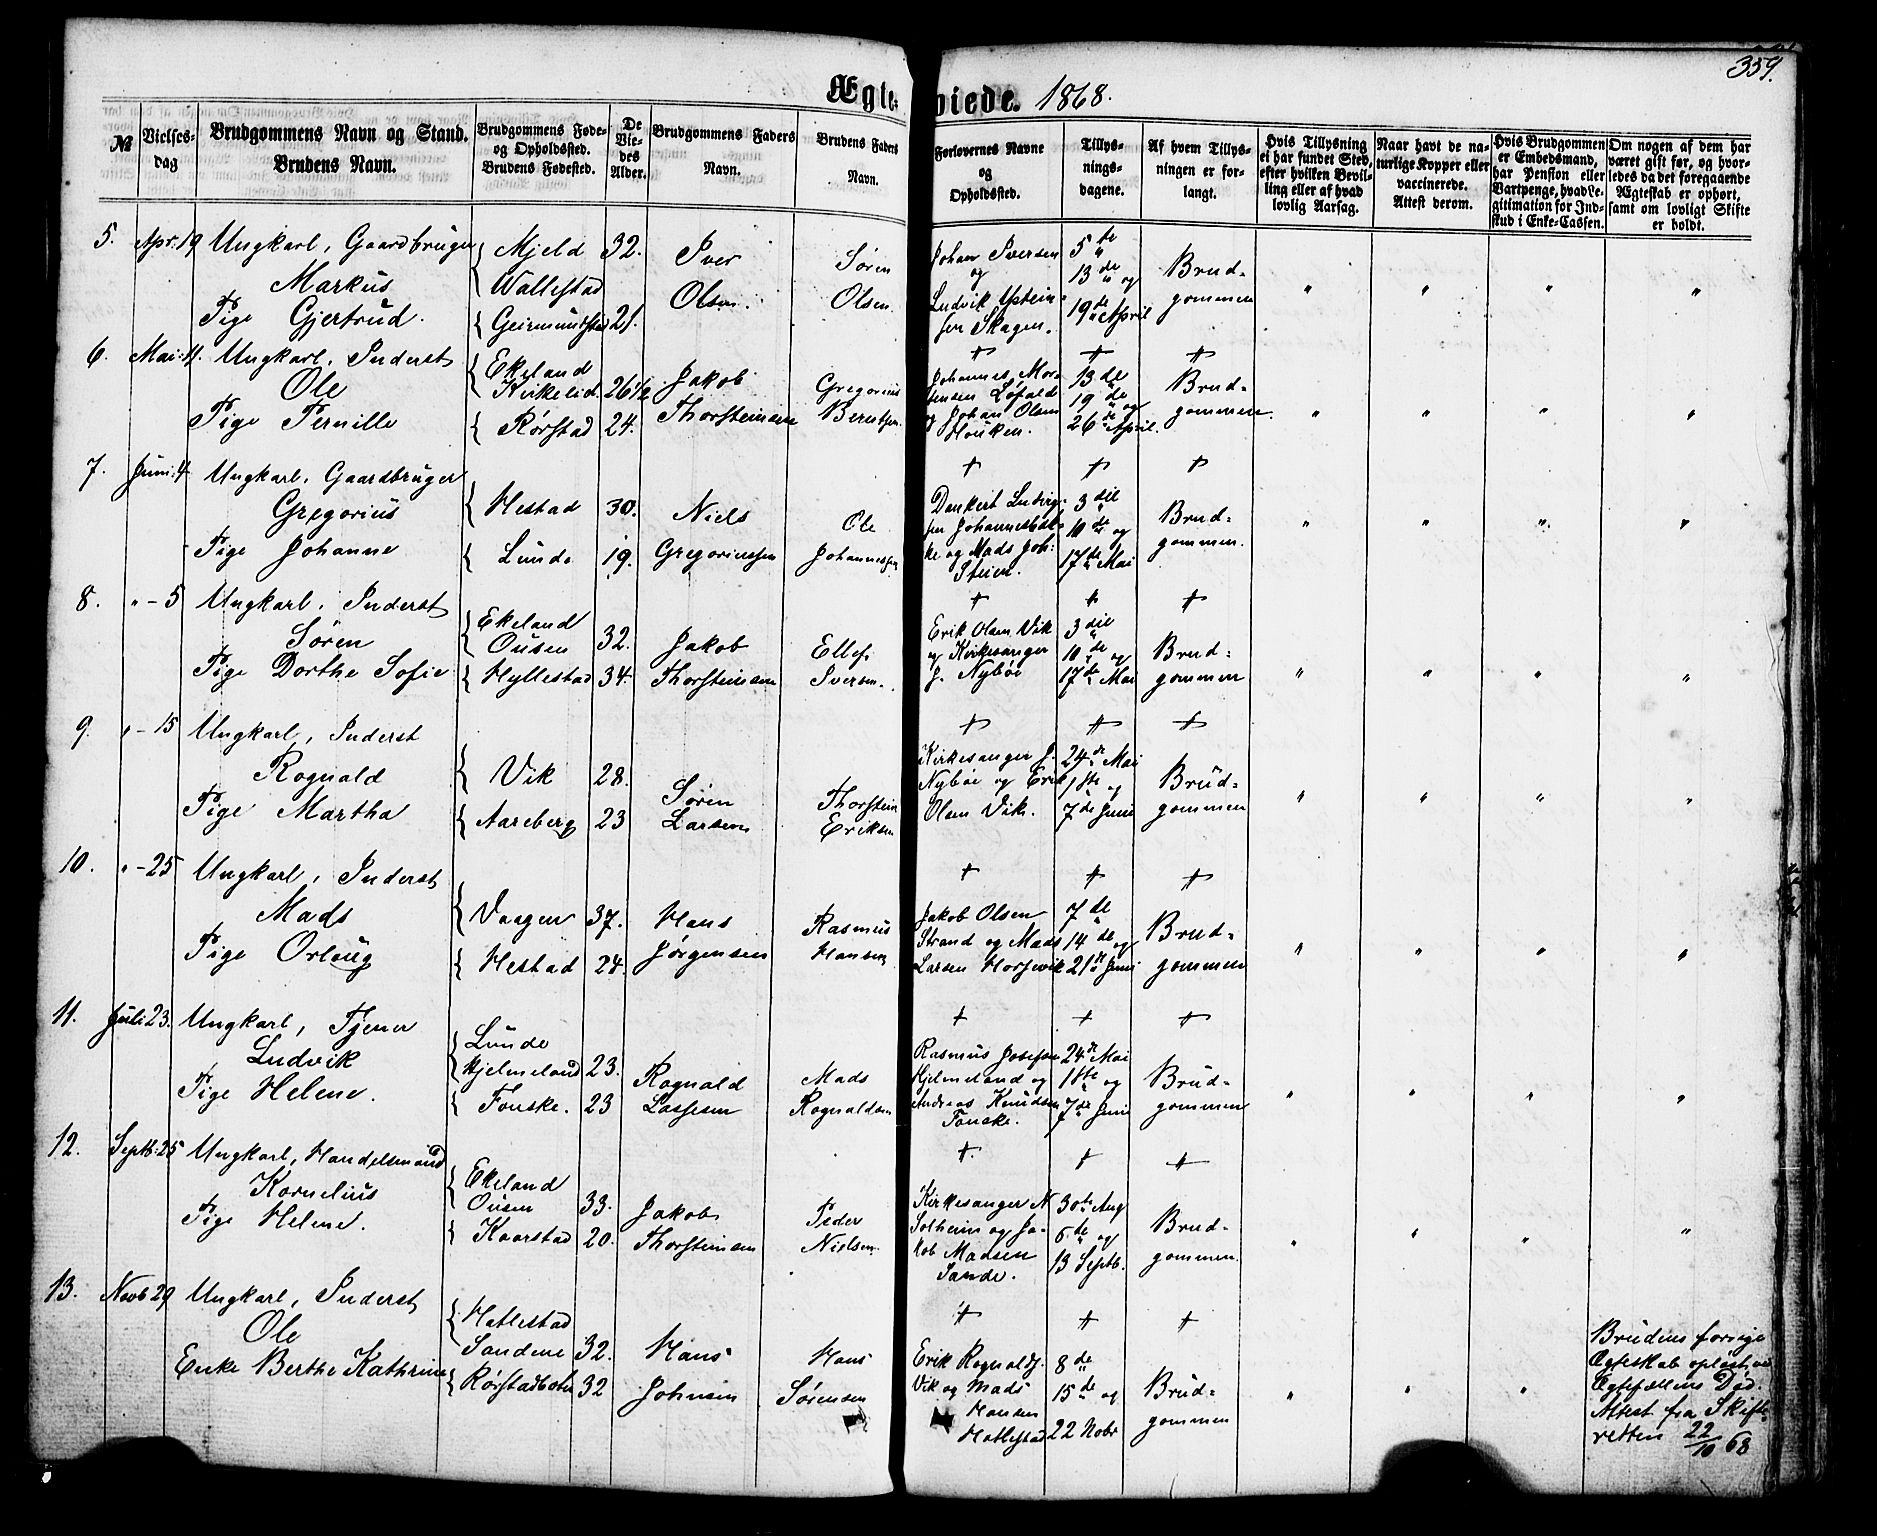 359.
Ægteviede. 1868.
№ | Vielses-dag | Brudgommens Navn og Stand. Brudens Navn. | Brudgommens Føde- og Opholdssted. Brudens Fødested. | De Viedes Alder. | Brudgommens Faders Navn. | Brudens Faders Navn. | Forlovernes Navne og Opholdssted. | Tillysningsdagene. | Af hvem Tillysningen er forlangt. | Hvis Tillysning ei har fundet Sted, efter hvilken Bevilling eller af hvad lovlig Aarsag. | Naar havt de naturlige Kopper eller vaccinerede. Attest derom. | Hvis Brudgommen er Embedsmand, har Pension eller Vartpenge, hvad Legitimation for Indskud i Enke-Cassen. | Om nogen af dem har været gift før, og hvorledes da det foregaaende Ægteskab er ophørt, samt om lovligt Skifte er holdt.
5. | Apr. 19 | Ungkarl, Gaardbruger Markus Pige Gjertrud. | Mjeld Wallestad Geirmundstad | 32. 21. | Iver Olsen. | Søren Olsen | Johan Iversen og Ludvik Skagen. | 5te 13de og 19de April | Brudgommen | " | " | " | "
6. | Mai: 11. | Ungkarl, Inderst Ole Pige Pernille | Ekeland Kirkelid. Rørstad | 26 1/2 24. | Jakob Thorsteinsen | Gregorius Berntsen. | Johannes Mortensen Løfald og Johan Olsen Houken. | 13de 19de og 26de April. | Brudgommen. | " | " | " | "
7. | Juni: 4 | Ungkarl, Gaardbruger Gregorius Pige Johanne | Hestad Lunde | 30. 19. | Niels Gregoriussen | Ole Johannessen | Dankert og Mads Joh: Steien. | 3die 10de og 17de Mai | Brudgommen. | " | " | " | "
8. | " - 5 | Ungkarl, Inderst Søren Pige Dorthe Sofie | Ekeland Ousen Hyllestad | 32. 34. | Jakob Thorsteinsen | Ellef Iversen. | Erik Olsen Vik og Kirkesanger J. Nybøe | 3die 10de og 17de Mai | Brudgommen | " | " | " | "
9. | " - 15 | Ungkarl, Inderst Rognald Pige Martha | Vik Aareberg | 28. 23 | Søren Larsen | Thorstein Eriksen | Kirkesanger J. Nybøe og Erik Olsen Vik. | 24de Mai 1ste og 7de Juni | Brudgommen | " | " | " | "
10. | " - 25 | Ungkarl, Inderst Mads Pige Orloug | Vaagen Hestad | 37. 24. | Hans Jørgensen | Rasmus Hansen | Jakob Olsen Strand og Mads Larsen Horsevik | 7de 14de og 21de Juni | Brudgommen | " | " | " | "
11. | Juli 23. | Ungkarl, Tjener Ludvik Pige Helene. | Lunde Hjelmeland Fonske. | 23. 23 | Rognald Lassesen | Mads Rognaldsen | Rasmus Josefsen Hjelmeland og Andreas Knudsen Fonske. | 24de Mai 1ste og 7de Juni | Brudgommen | " | " | " | "
12. | Septb: 25 | Ungkarl, Handelsmand Kornelius Pige Helene. | Ekeland Ousen Kaarstad | 33. 20. | Jakob Thorsteinsen | Peder Nielsen. | Kirkesanger N Solheim og Jakob Madsen Sande. | 30te Aug 6de og 13 Septb. | Brudgommen. | " | " | " | "
13. | Novb 29 | Ungkarl, Inderst Ole Enke Berthe Kathrine | Hatlestad Sandene Rørstadbotn | 32. 32 | Hans Johnsen | Hans Sørensen | Erik Rognalds. Vik og Mads Hansen Hatlestad | 8de 15de og 22 Nobr | Brudgommen | " | " | " | Brudens forrige Ægteskab opløst ved Ægtefællens Død. Attest fra Skifteretten 22/10 68